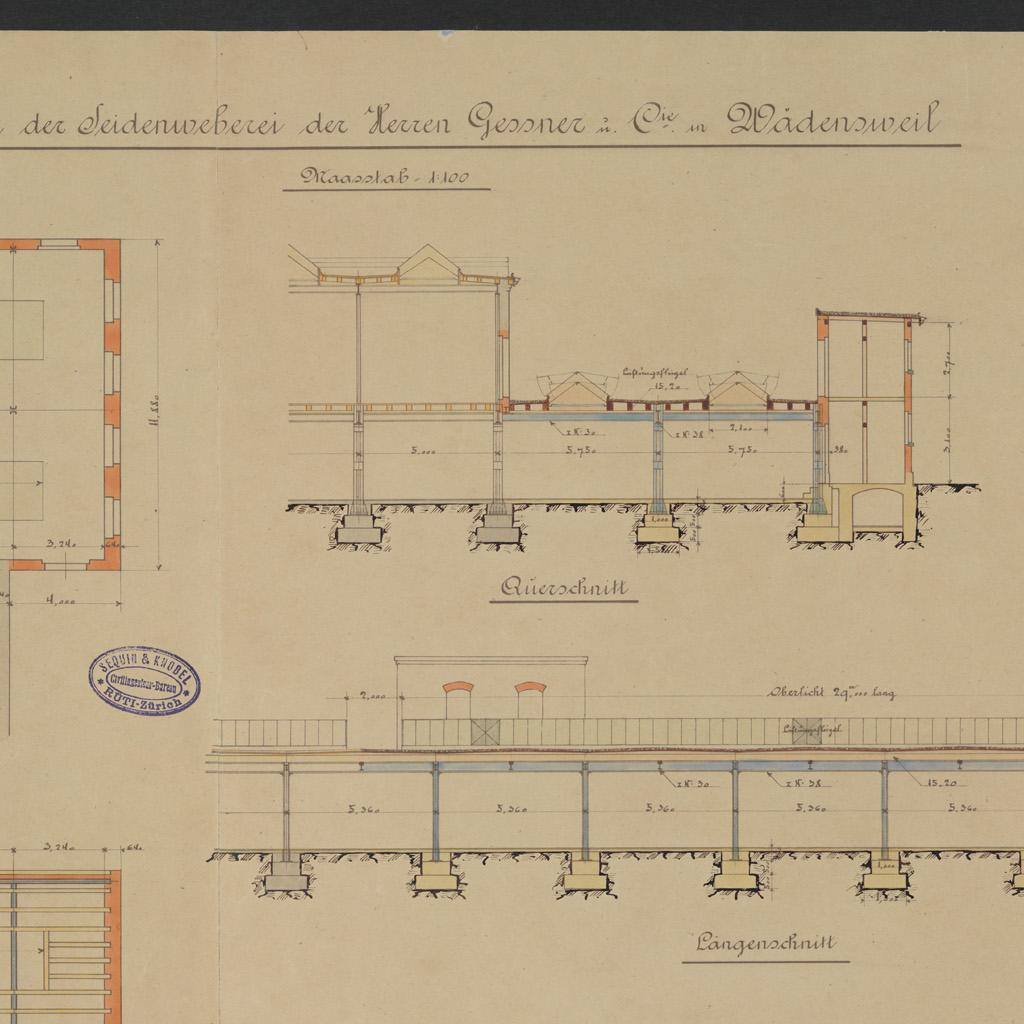 der Seidenweberei der Herren Gessner u. Cie. in Wädensweil
Maasstab - 1:100
Luftungsflügel
15,20
2,700
11,880
I N: 30
I N: 38
2,100
5,000
5,750
5,750
380
3,100
3,240
640
1,000
4,000
Querschnitt
SEQUIN & KNOBEL
Civilingenieur-Bureau
RÜTI-Zürich
2,000
Oberlicht 29,000 lang
Luftungsflügel
I N: 30
I N: 38
15,20
5,360
5,360
5,360
5,360
5,360
3,240
640
1,000
Längenschnitt